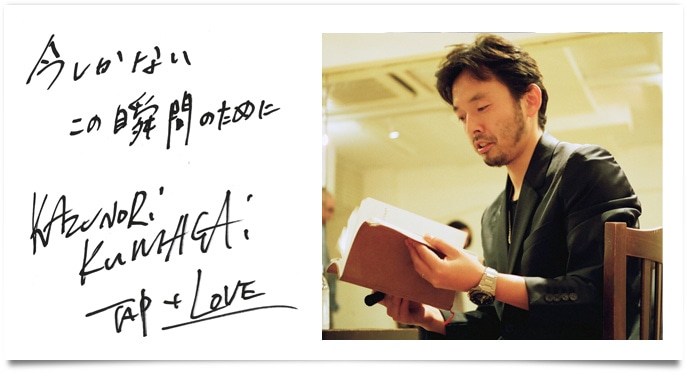 今しかない
この瞬間のために
KAZUNORi
KUMAGAi
TAP + LOVE